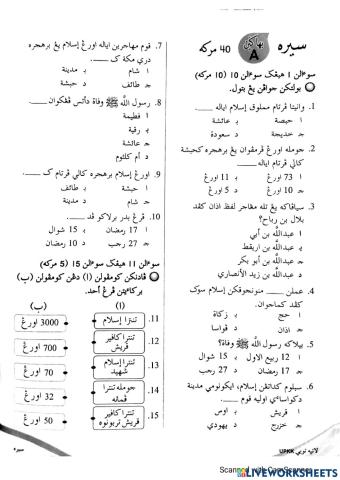 سيره
بهاڬين
A
40 مركه
سوءالن 1 هيڠݢ سوءالن 10 (10 مركه)
بولتكن جواڤن يڠ بتول.
1. وانيتا ڤرتام مملوق إسلام اياله ____.
ا حبصة
ب عائشة
ج خديجة
د سعودة
2. جومله اورڠ ڤرمڤوان يڠ برهجره كحبشة
كالي ڤرتام اياله ____
ا 73 اورڠ
ب 11 اورڠ
ج 10 اورڠ
د 5 اورڠ
3. سياڤاكه يڠ تله مڠاجر لفظ اذان كڤد
بلال بن رباح؟
ا عبدالله بن أبي
ب عبدالله بن اريقط
ج عبدالله بن أبو بكر
د عبدالله بن زيد الأنصاري
4. عملن ____ منونجوقكن إسلام سوك
كڤد كماجوان.
ا حج
ب زكاة
ج اذان
د ڤواسا
5. بيلاكه رسول الله ﷺ وفاة؟
ا 12 ربيع الاول
ب 15 شوال
ج 17 رمضان
د 27 رجب
6. سبلوم كداتڠن إسلام، ايكونومي مدينة
دكواساءي اوليه قوم ____.
ا قريش
ب اوس
ج خزرج
د يهودي
7. قوم مهاجرين اياله اورڠ إسلام يڠ برهجره
دري مكة ك ____.
ا شام
ب مدينة
ج طائف
د حبشة
8. رسول الله ﷺ وفاة داتس ڤڠكوان ____.
ا فطيمة
ب رقية
ج عائشة
د أم كلثوم
9. اورڠ إسلام برهجره كالي ڤرتام ك ____.
ا حبشة
ب طائف
ج مدينة
د شام
10. ڤرڠ بدر برلاكو ڤد ____.
ا 17 رمضان
ب 15 شوال
ج 27 رجب
د 10 رمضان
سوءالن 11 هيڠݢ سوءالن 15 (5 مركه)
ڤادنكن كومڤولن (ا) دڠن كومڤولن (ب)
(ا)
(ب)
11. تنترا إسلام
3000 اورڠ
12. تنترا كافير قريش
700 اورڠ
13. تنترا إسلام شهيد
70 اورڠ
14. جومله تنترا ڤمانه
32 اورڠ
15. تنترا كافير قريش تربونوه
50 اورڠ
سيره
UPKK
Scanned with CamScanner
LIVEWORKSHEETS